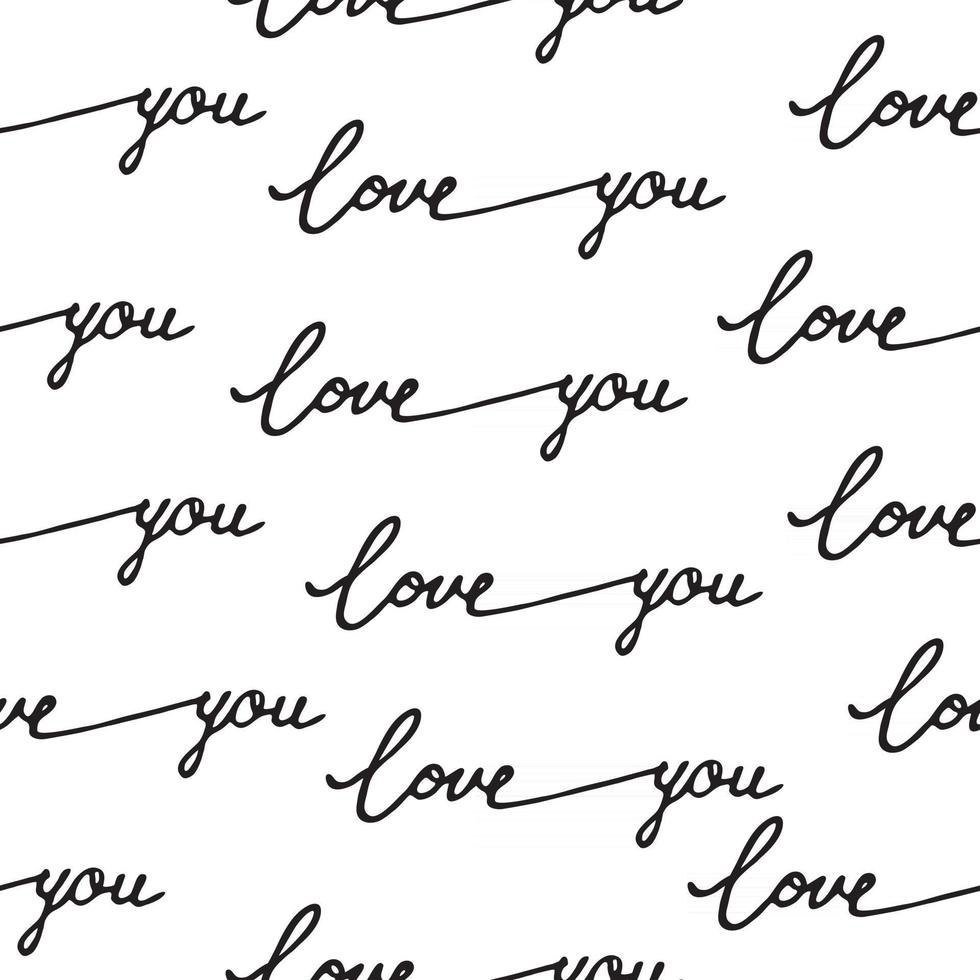 love you
love
you
love you
love
you
love you
love
you
love you
love
you
love you
love
you
love you